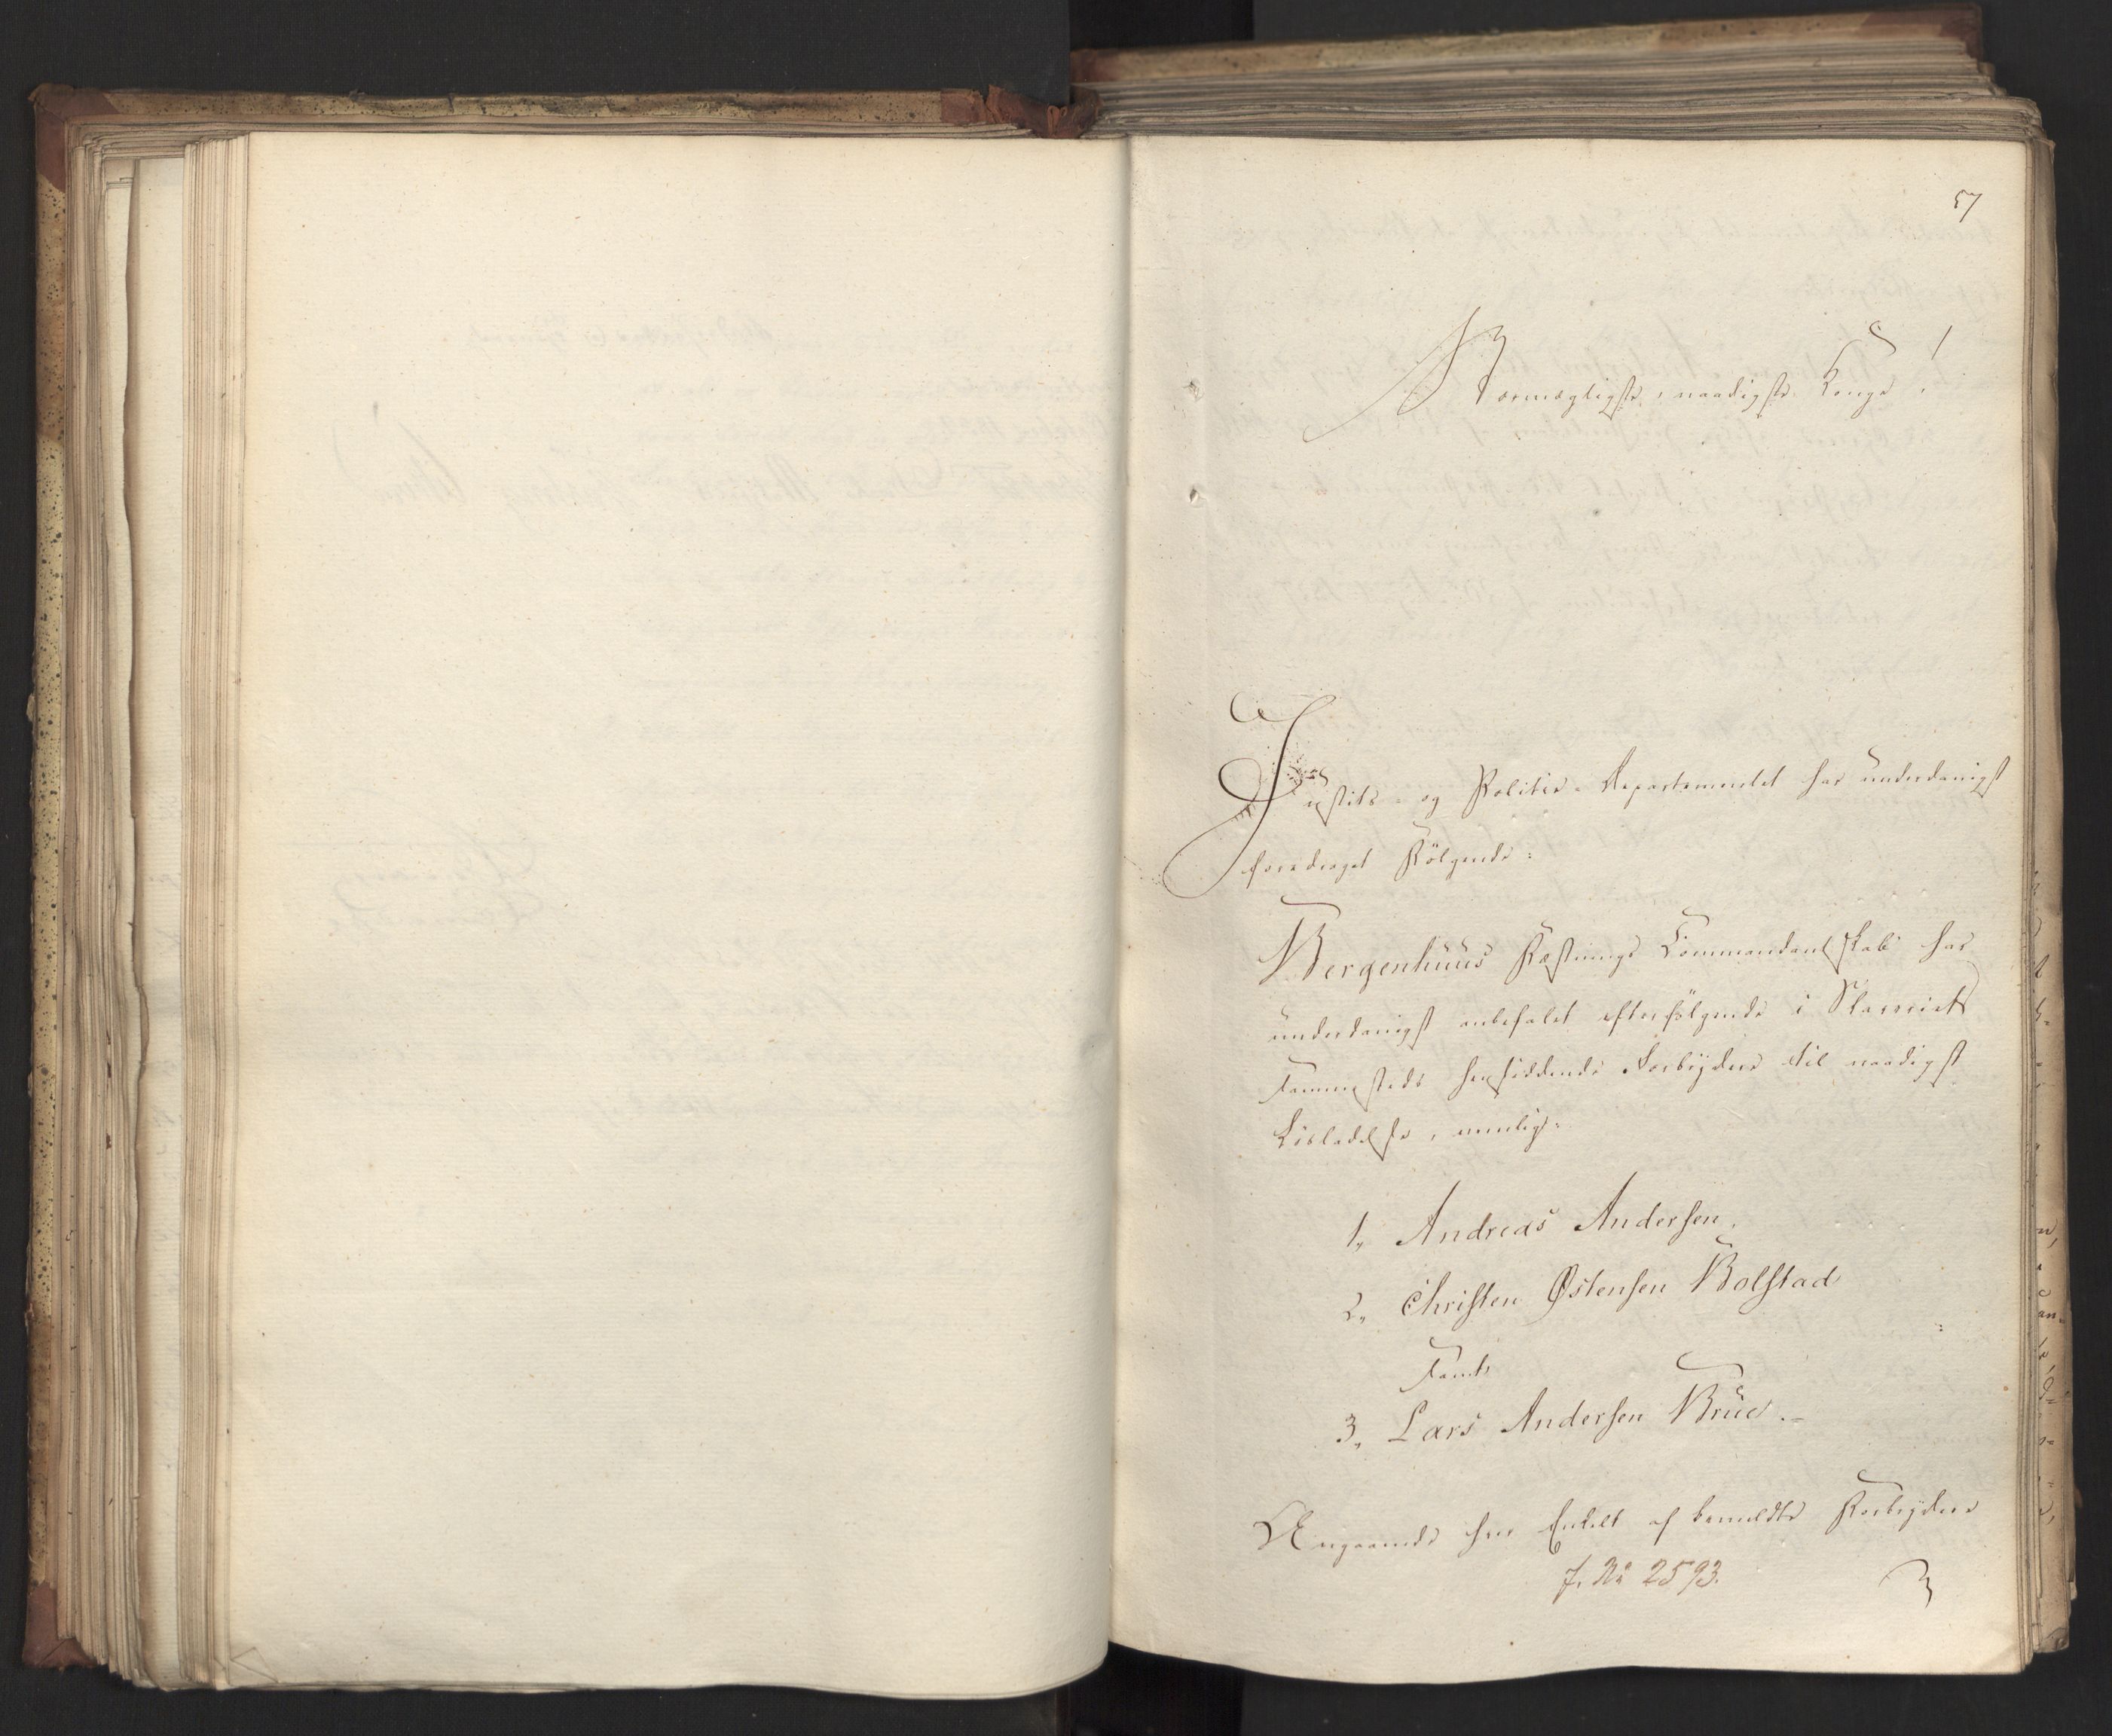 57
Stormægtigste, naadigste Konge!
Justits- og Politie-Departementet har underdanigst
foredraget Følgende:
Bergenhuus Fæstnings Commandantskab har
underdanigst anbefalet efterfølgende i Slaveriet
sammesteds hensiddende Forbrydere til naadigst
Løsladelse, nemlig:
1, Andreas Andersen,
2, Christen Østensen Bolstad
samt
3, Lars Andersen Brue.-
Angaaende hver Enkelt af bemeldte Forbrydere
J. No 2593.